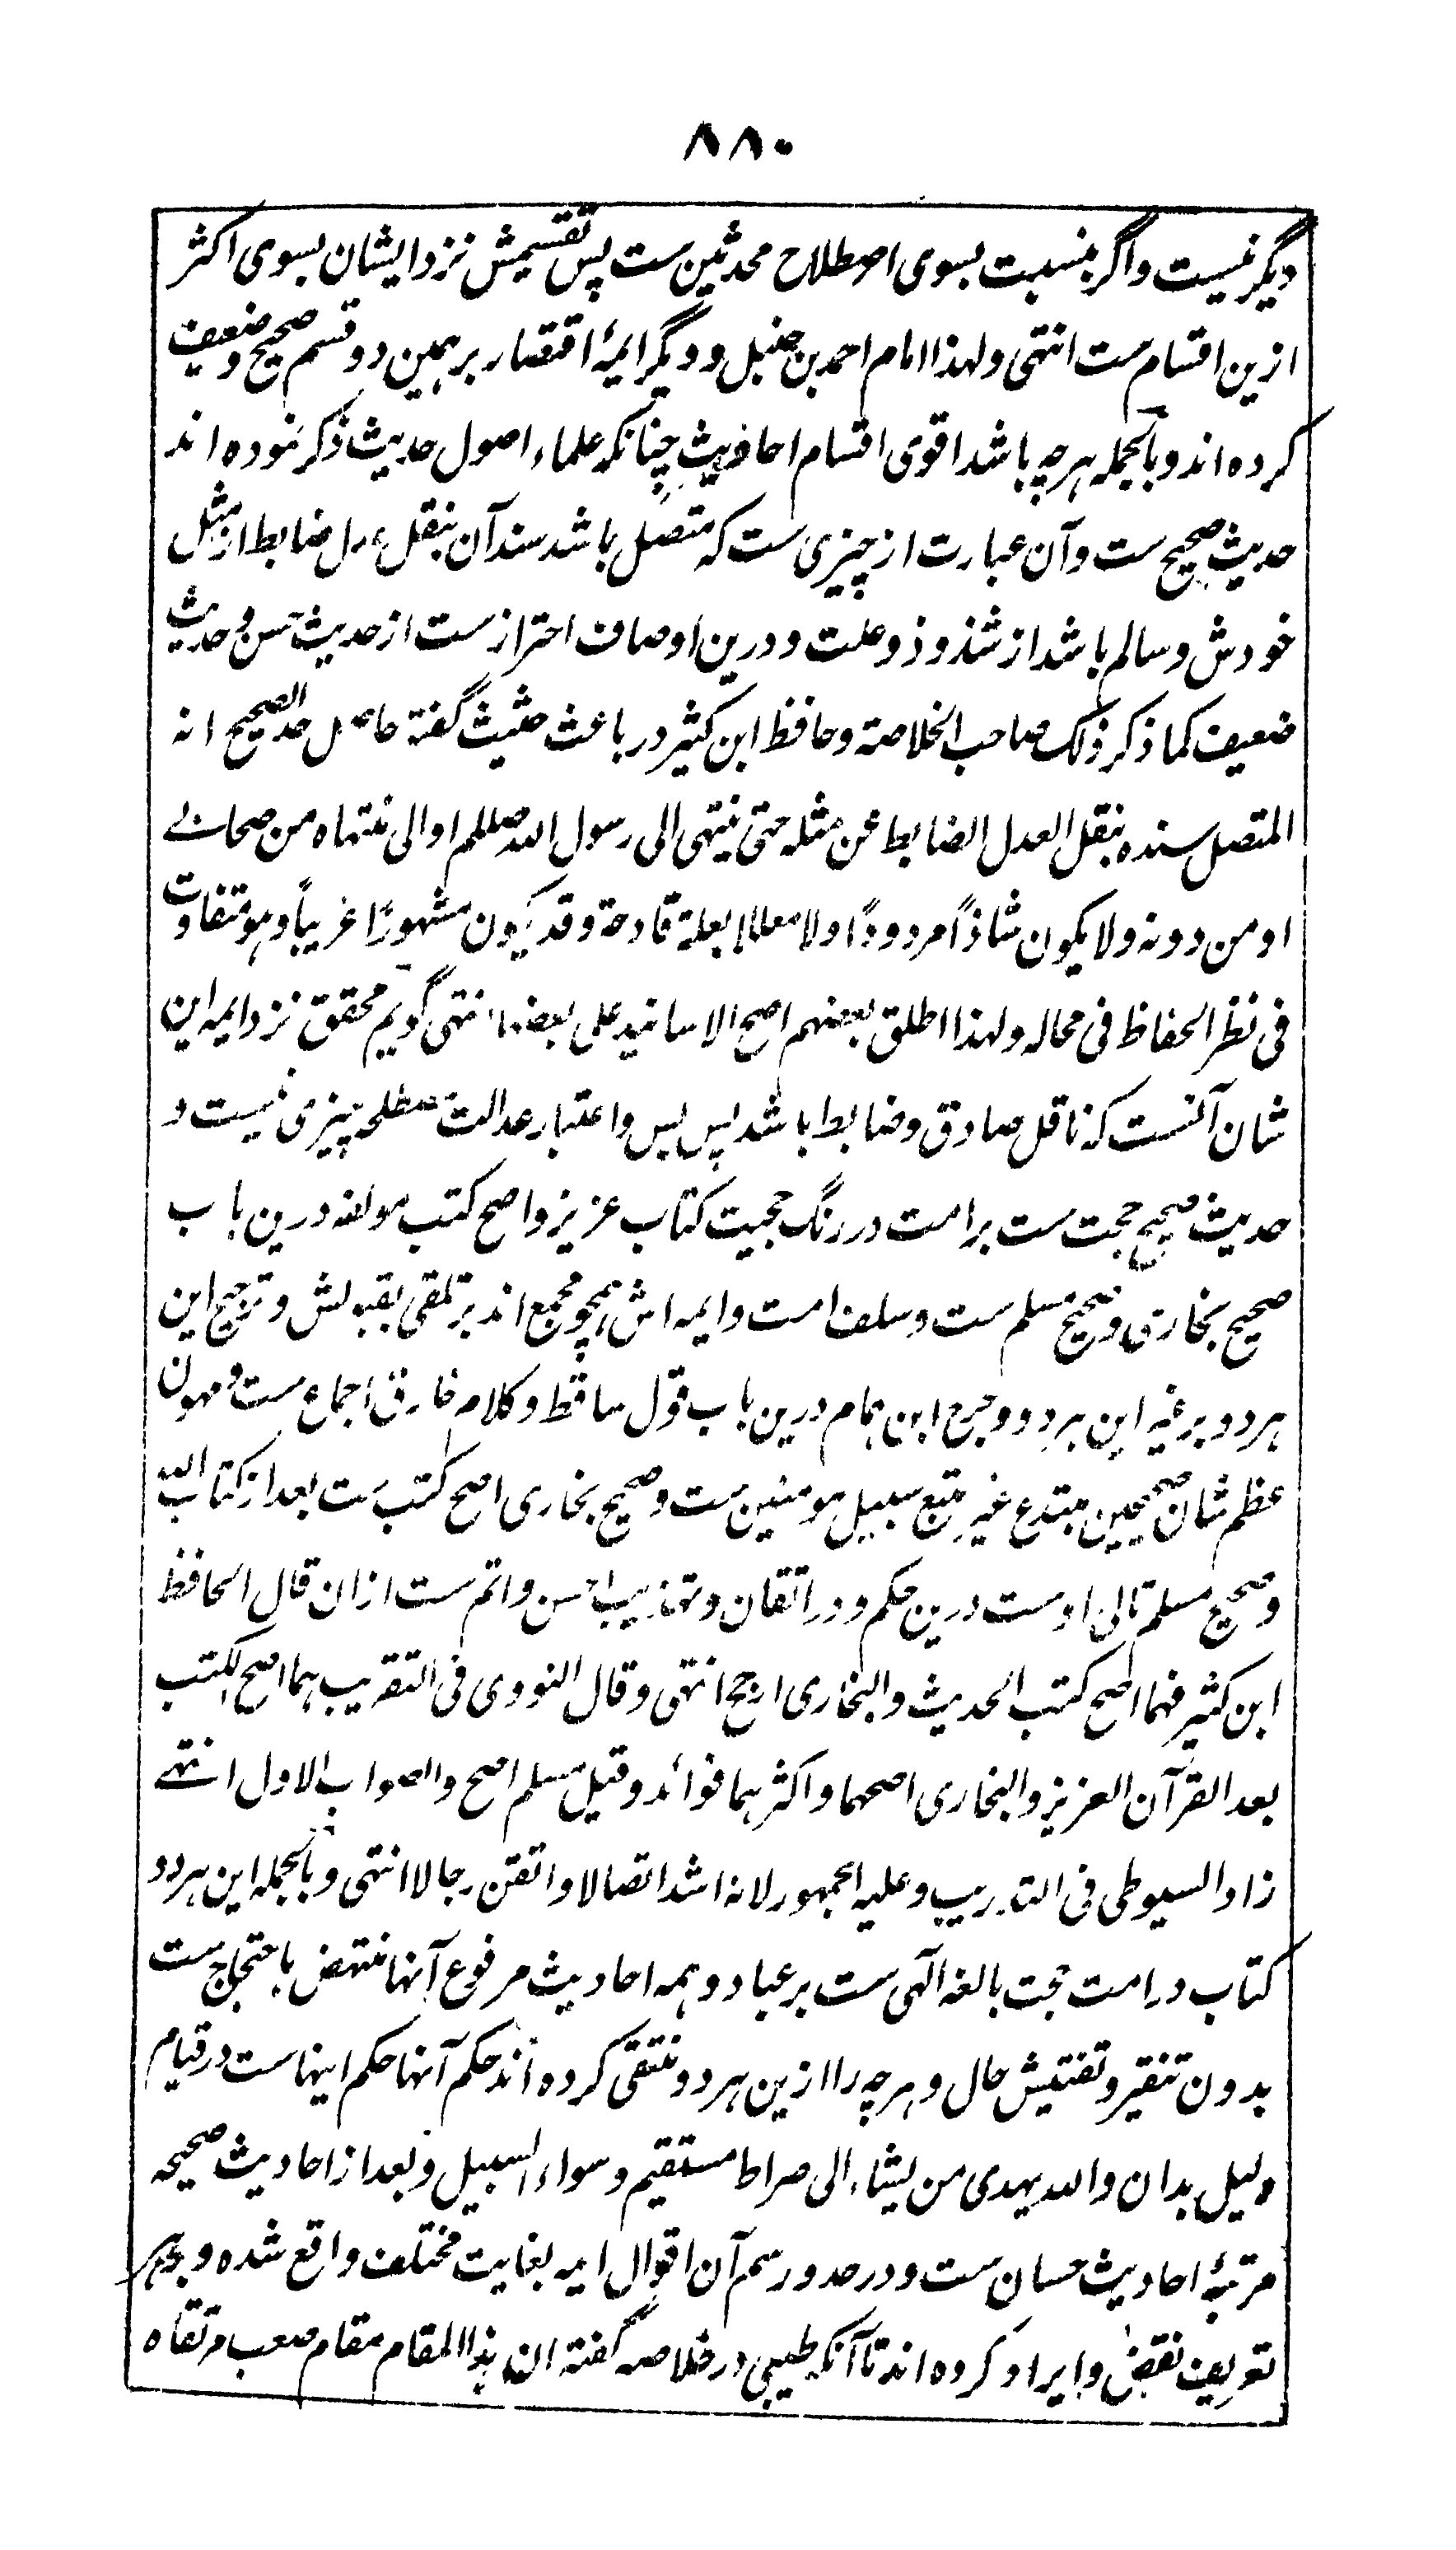 ۸۸۰
دیگر نیست و اگر بنسبت بسوی اصطلاح محدثین ست پس تقسیمش نزد ایشان بسوی اکثر
ازین اقسام ست انتهی و لهذا امام احمد بن حنبل و دیگر ایمۀ اقتصار بر همین دو قسم صحیح و ضعیف
کرده اند و بالجمله هر چه باشد اقوی اقسام احادیث چنانکه علماء اصول حدیث ذکر نموده اند
حدیث صحیح ست و آن عبارت از چیزی ست که متصل باشد سند آن بنقل عدل ضابط از مثل
خودش و سالم باشد از شذوذ و علت و درین اوصاف احتراز ست از حدیث حسن و حدیث
ضعیف کما ذکر ذلک صاحب الخلاصة و حافظ ابن کثیر در باعث حثیث گفته حاصل حد الصحیح انه
المتصل سنده بنقل العدل الضابط عن مثله حتی ینتهی الی رسول الله صللم او الی منتهاه من صحابے
او من دونه و لا یکون شاذاً مردوداً و لا معللا بعلة قادحة و قد یکون مشهورًا غریباً و هو متفاوت
فی نظر الحفاظ فی محاله و لهذا اطلق بعضهم اصح الاسانید علی بعضها انتهی گویم محقق نزد ایمه این
شان آنست که ناقل صادق و ضابط باشد پس بس و اعتبار عدالت مصطلحه چیزی نیست و
حدیث صحیح حجت ست بر امت در رنگ حجیت کتاب عزیز و اصح کتب مولفه درین باب
صحیح بخاری و صحیح مسلم ست و سلف امت و ایمه اش همچو مجمع اند بر تلقی بقبولش و ترجیح این
هر دو بر غیر این هر دو و جرح ابن همام درین باب قول ساقط و کلام خارق اجماع ست و مهون
عظم شان صحیحین مبتدع غیر متبع سبیل مومنین ست و صحیح بخاری اصح کتب ست بعد از کتاب الله
و صحیح مسلم تالی اوست درین حکم و در اتقان و تهذیب احسن و اتم ست ازان قال الحافظ
ابن کثیر فهما اصح کتب الحدیث و البخاری ارجح انتهی و قال النووی فی التقریب هما اصح الکتب
بعد القرآن العزیز و البخاری اصحهما و اکثرهما فوائد و قیل مسلم اصح و الصواب الاول انتهے
زاد السیوطی فی التدریب و علیه الجمهور لانه اشد اتصالا و اتقن رجالا انتهی و بالجمله این هر دو
کتاب در امت حجت بالغه الهی ست بر عباد و همه احادیث مرفوع آنها منتهض باحتجاج ست
بدون تنقیر و تفتیش حال و هر چه را ازین هر دو منتقی کرده اند حکم آنها حکم اینهاست در قیام
دلیل بدان و الله یهدی من یشاء الی صراط مستقیم و سواء السبیل و بعد از احادیث صحیحه
مرتبۀ احادیث حسان ست و در حد و رسم آن اقوال ایمه بغایت مختلف واقع شده و بر هر
تعریف نقض و ایراد کرده اند تا آنکه طیبی در خلاصه گفته ان هذا المقام مقام صعب مرتقاه